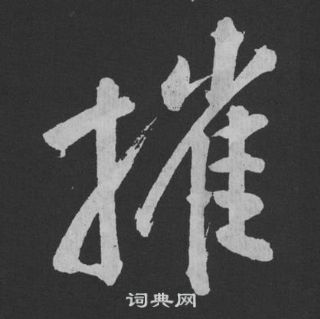 摧
词典网